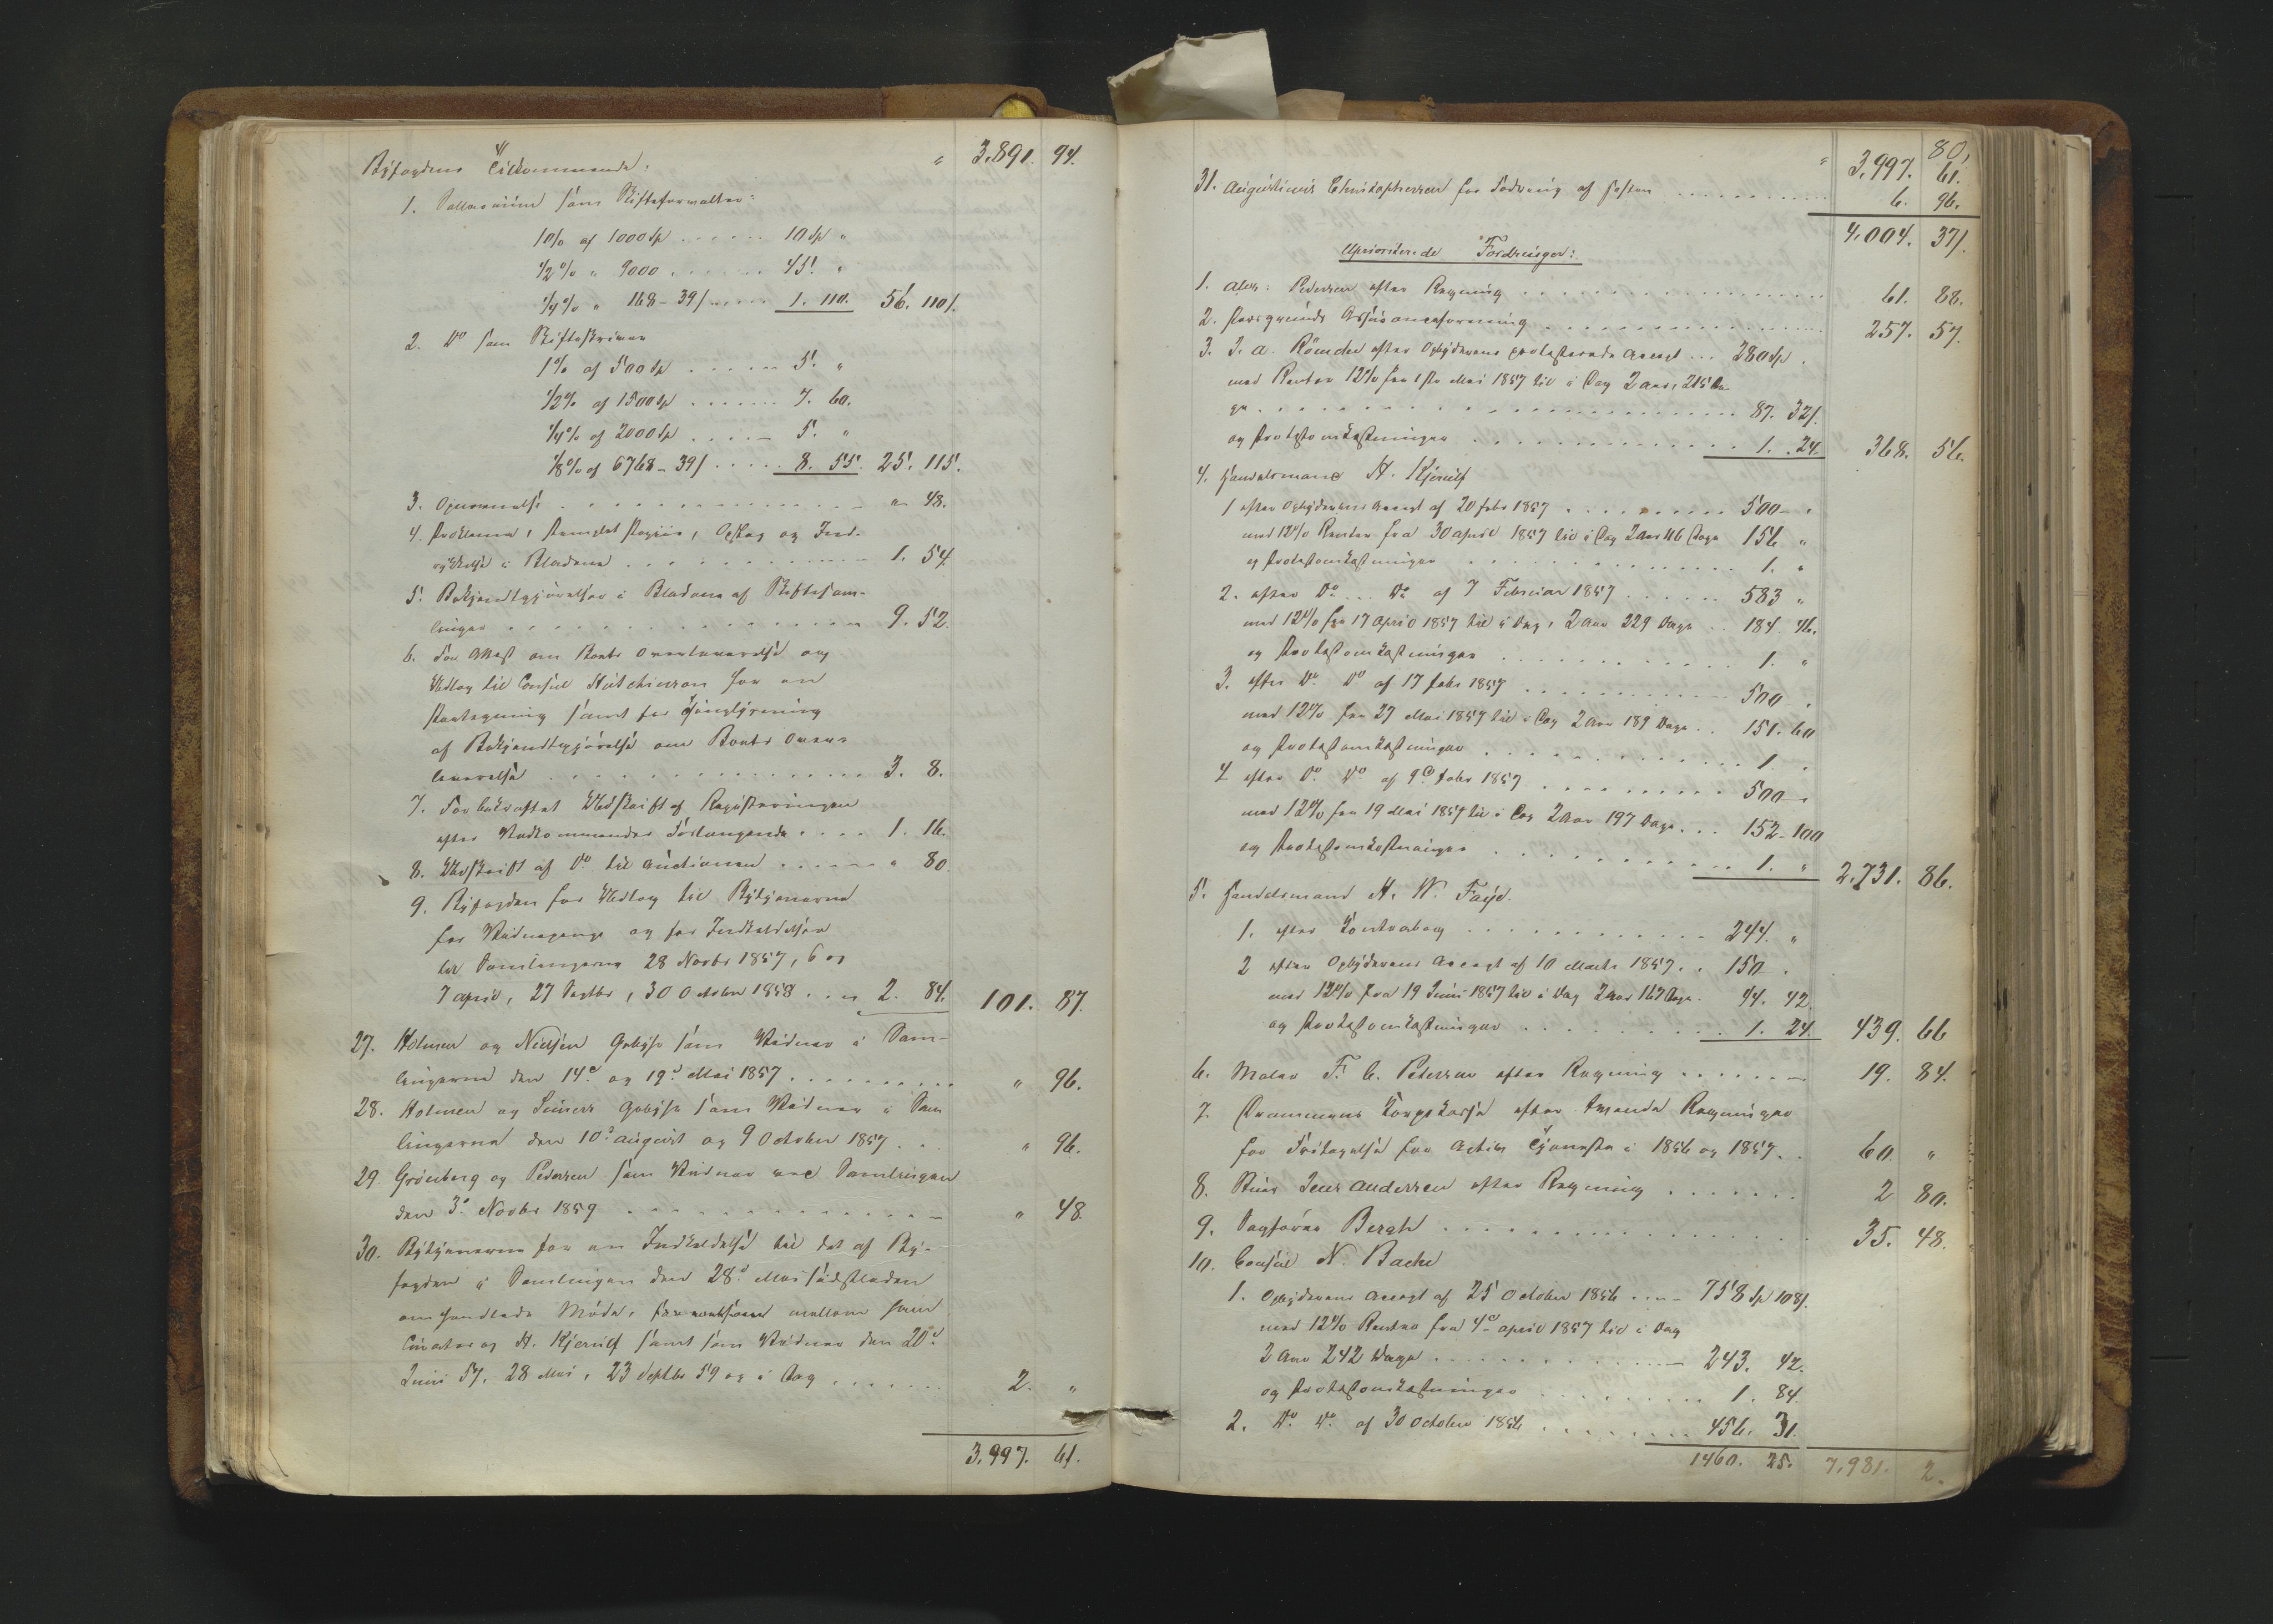 " 3.891. 94.
Byfogdens Tilkommende:
1. Sallarium som Skifteforvalter:
1% af 1000 Sp ...... 10 Sp "
1/2% " 9000 ...... 45. "
1/4% " 768-39/ ..... 1. 110. 56. 110/.
2. Do som Skifteskriver
1% af 500 Sp ...... 5. "
1/2% af 1500 Sp ...... 7. 60.
1/4% af 2000 Sp ..... 5. "
1/8% af 6768-39/ ..... 8. 55. 25. 115.
3. " 48.
4. Proklama, stemplet Papiir, Opslag og Ind-
rykkelse i Bladene ........ 1. 54.
5. Bekjendtgjørelser i Bladene af Skiftesam-
linger ........ 9. 52.
6. For Attest om Boets Overleverelse og
Udlæg til Consul Hutchinson for en
Paategning samt for Thinglysning
af Bekjendtgjørelse om Boets Over-
leverelse ........ 3. 8.
7. For bekræftet Udskrift af Registreringen
efter Vedkommendes Forlangende .... 1. 16.
8. Udskrift af Do til Auctionen ...... " 80.
9. Byfogden for Udlæg til Bytjenerne
for Vidnegange og for Indkaldelser
til Samlingerne 28 Novbr 1857, 6 og
7 April, 27 Septbr, 30 October 1858 ... 2. 84. 101. 87.
27. Holmen og Nielsen Gebyhr som Vidner i Sam-
lingerne den 14de og 19de Mai 1857 ......... " 96.
28. Holmen og Gebyhr som Vidner i Sam
lingerne den 10de August og 9 October 1857 .. " 96.
29. Grönberg og Pedersen som Vidner ved Samlingen
den 3de Novbr 1859 ............ " 48.
30. Bytjenerne for en Indkaldelse til det af By-
fogden i Samlingen den 28de Mai sidstleden
omhandlede Møde, mellem
Curator og H. Kjerulf samt som Vidner den 20de
Juni 57, 28 Mai, 23 Septbr 59 og i Dag ....... 2. "
3.997. 61.
80.
" 3,997. 61.
31. Augustinus Christophersen for Fodring af Hesten ........... 6. 96.
4,004. 37/.
Uprioriterede Fordringer:
1. Alex: Pedersen efter Regning ................ 61. 88.
2. Porsgrunds Assuranceforening ............... 257. 57.
3. J. A. efter Opbyderens protesterede Accept ... 280 Sp.
med Renter 12% fra 1ste Mai 1857 til i Dag 2 Aar, 215 Da-
ge ............... 87. 32/.
og Protestomkostninger ............. 1. 24. 368. 56.
4. Handelsmand H. Kjerulf
1 efter Opbyderens Accept af 20 Febr 1857 ......... 500 - "
med 12% Renter fra 30 April 1857 til i Dag 2 Aar 216 Dage 156 "
og Protestomkostninger ............. 1. "
2. efter Do ... Do af 7 Februar 1857 ...... 583 "
med 12% fra 17 April 1857 til i Dag, 2 Aar 229 Dage .. 184. 46.
og Protestomkostninger ............ 1. "
3. efter Do. Do af 17 Febr 1857 ........... 500 "
med 12% fra 27 Mai 1857 til i Dag 2 Aar 189 Dage .. 151. 60
og Protestomkostninger ............. 1 .
4 efter Do. Do af 9de Febr 1857 .......... 500 - "
med 12% fra 19 Mai 1857 til i Dag 2 Aar 197 Dage ... 152 - 100
og Protestomkostninger ............. 1. " 2,731. 86.
5. Handelsmand H. W. Faye.
1. efter Contrabog ............ 244. "
2 efter Opbyderens Accept af 10 Marts 1857 .. 150 .
med 12% fra 19 Juni 1857 til i Dag 2 Aar 167 Dage . 44. 42.
og Protestomkostninger .......... 1. 24. 439. 66
6. Maler F. C. Petersen efter Regning ....... 19. 84.
7. Drammens efter tvende Regninger
for Fritagelse for activ Tjeneste i 1856 og 1857 .. 60 "
8. Jens Andersen efter Regning ....... 2 80.
9. Sagfører Bergh ................ 35. 48.
10. Consul N. Bache
1. Opbyderens Accept af 25 October 1856 .... 758 Sp 108/.
med 12% Renter fra 4de April 1857 til i Dag
2 Aar 242 Dage ............. 243. 42.
og Protestomkostninger .......... 1. 84.
2. Do. Do. af 30 October 1856 ........ 456. 31.
1460. 25. 7,981. 2.